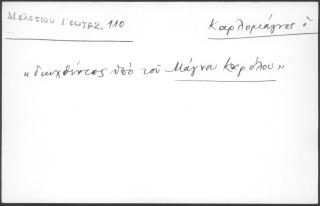 Μελετίου Γεωγρ, 110
Καρλομάγνος ὁ
« διωχθέντες ὑπό τοῦ Μάγνου Καρόλου »